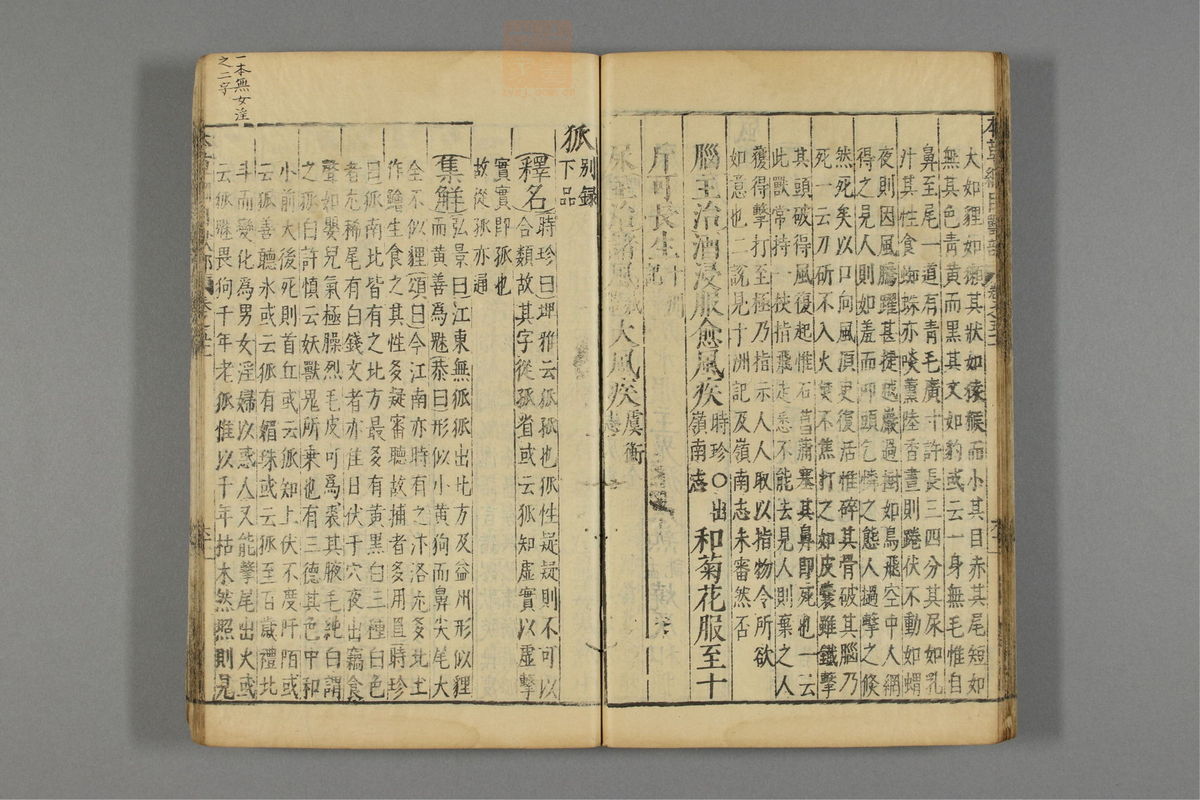 大如貍如獺其狀如猿猴而小其目赤其尾短如
無其色青黃而黑其文如豹或云一身無毛惟自
鼻至尾一道有青毛廣寸許長三四分其尿如乳
汁其性食蜘蛛亦啖薰陸香晝則踡伏不動如螬
夜則因風騰躍甚捷越巖過樹如鳥飛空中人網
得之見人則如羞而叩頭乞憐之態人撾擊之倏
然死矣以口向風須臾復活惟碎其骨破其腦乃
死一云刀斫不入火焚不焦打之如皮囊雖鐵擊
其頭破得風復起惟石菖蒲塞其鼻即死也一云
此獸常持一杖指飛走悉不能去見人則棄之人
獲得擊打至極乃指示人人取以指物令所欲
如意也二說見十洲記及嶺南志未審然否
腦主治酒浸服愈風疾時珍○出嶺南志和菊花服至十
斤可長生十洲記
大風疾虞衡志
狐別錄下品
釋名時珍曰埤雅云狐孤也狐性疑疑則不可以
合類故其字從孤省或云狐知虛實以虛擊
實實即孤也
故從孤亦通
集解弘景曰江東無狐出北方及益州形似貍
而黃善為魅恭曰形似小黃狗而鼻尖尾大
全不似貍頌曰今江南亦時有之汴洛尤多北土
作鱠生食之其性多疑審聽故捕者多用罝時珍
曰狐南北皆有之北方最多有黃黑白三種白色
者尤稀尾有白錢文者亦佳日伏于穴夜出竊食
聲如嬰兒氣極臊烈毛皮可為裘其腋毛純白謂
之狐白許慎云妖獸鬼所乘也有三德其色中和
小前大後死則首丘或云狐知上伏不度阡陌或
云狐善聽冰或云狐有媚珠或云狐至百歲禮北
斗而變化為男女淫婦以惑人又能擊尾出火或
云狐魅畏狗千年老狐惟以千年枯木然照則見
一本無女淫
之二字